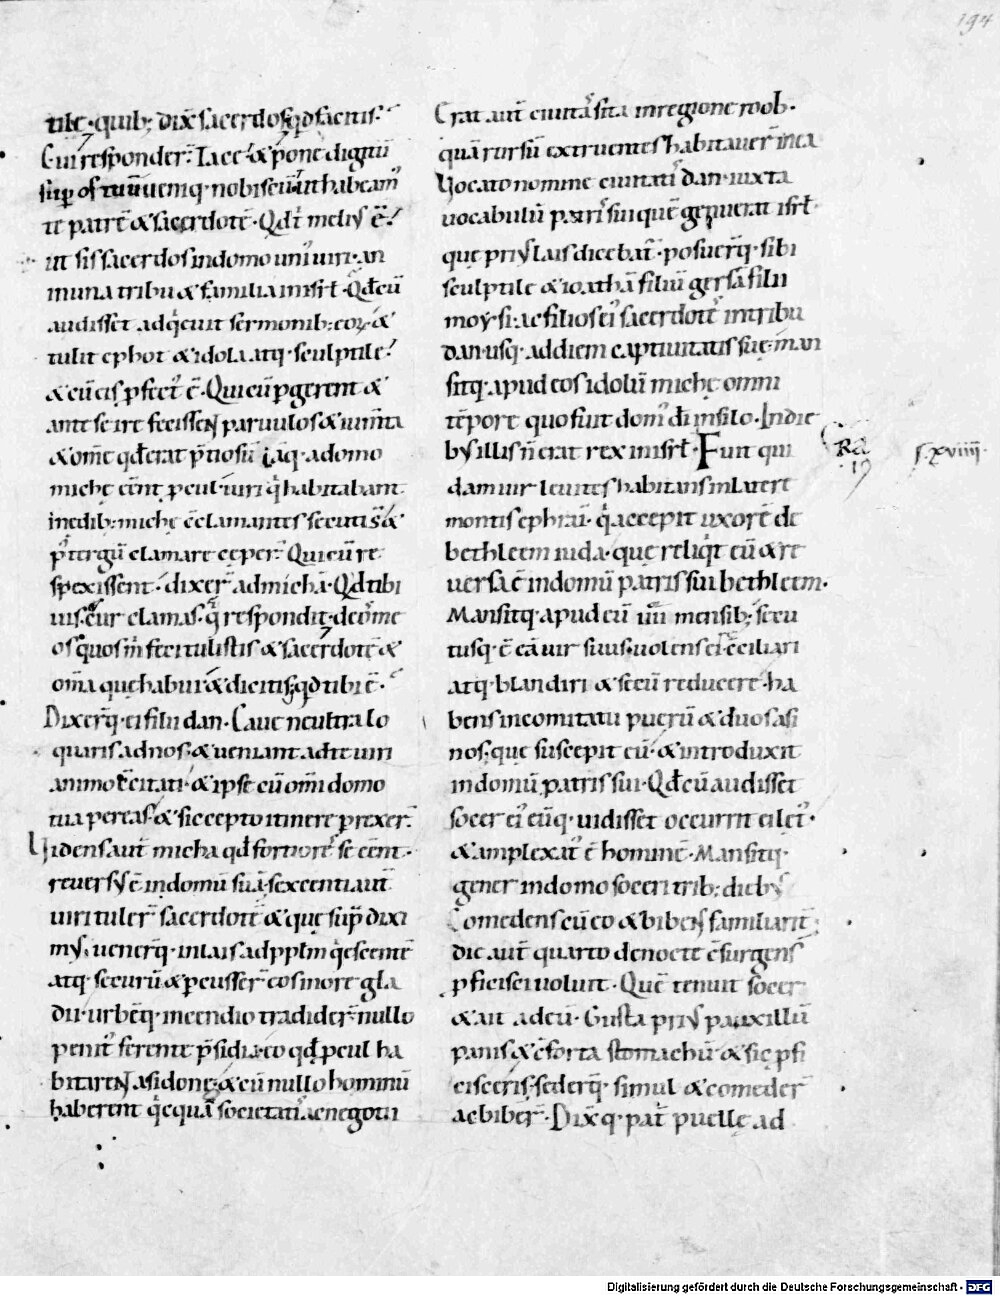 194
tile· quib; dix̄ sacerdos q̄d facitis·
Cui responder̄· Tace & pone digitū
sup̄ os tuum uenīq· nobiscū ut habeam̄
te patrē & sacerdotē· Qd̄ t̄ meliꝰ ē·
ut sis sacerdos in domo uniꝰ uiri· an
in una tribu & familia in isrł· Qd̄ cū
audisset adq̇euit sermonib; eoꝝ· &
tulit ephot & idola atq· sculptile·
& cū eis ꝓfectꝰ ē· Qui cū ꝑgerent &
ante se ire fecissent paruulos & iumt̄a
& om̄e qd̄ erat p̄tiosū iāq· a domo
miche eēnt ꝓcul· uiri q̇ habitabant
in edib; miche ēclamantes secuti s̄ &
p̄ tergū clamare ceper̄· Qui cū re
spexissent· dixer̄ ad michā· Qd̄ tibi
uis· cur clamas· q̇ respondit· deos me
os quos m̄ feci tulistis & sacerdotē &
om̄a que habui & dicitis qd̄ tibi ē·
Dixer̄q· ei filii dan· Caue ne ultra lo
quaris ad nos· & ueniant ad te uiri
animo ēcitati· & ipse cū om̄i domo
tua pereas· & sic cepto itinere ꝑrexer̄·
Uidens aut̄ micha qd̄ fortiores se eēnt·
reuersꝰ ē in domū suā· sexcenti aut̄
uiri tuler̄ sacerdotē & que sup̄ dixi
mꝰ· uener̄q· in lais ad pp̄lm q̇escentē
atq· securū & ꝑcusser̄ eos in ore gla
dii· urbēq· incendio tradider̄· nullo
penitꝰ ferente p̄sidiā· eo qd̄ ꝓcul ha
bitarent a sidone· & cū nullo hominū
haberent q̇cquā societatis ac negotii
Erat aut̄ ciuitas sita in regione roob·
quā rursū extruentes habitauer̄ in ea
Uocato nomine ciuitatis dan· iuxta
uocabulū patris sui quē genuerat isrł·
que priꝰ lais dicebat̄· posuer̄q· sibi
sculptile & ioathā filiū gersā filii
moysi· ac filios eiꝰ sacerdotes in tribu
dan· usq· ad diem captiuitatis suę· man
sitq· apud eos idolū michę omni
tēpore quo fuit domꝰ dī in silo· In die
bꝰ illis n̄ erat rex in isrł· Fuit qui
dam uir leuites habitans in latere
montis ephraī· q̇ accepit uxorē de
bethleem iuda· que reliq̇t eū & re
uersa ē in domū patris sui bethleem·
Mansitq· apud eū iiii mensib; secu
tusq· ē eā uir suus· uolens ei ēciliari
atq· blandiri & secū reducere· ha
bens in comitatu puerū & duos asi
nos· que suscepit eū· & introduxit
in domū patris sui· Qd̄ cū audisset
socer eiꝰ eūq· uidisset occurrit ei letꝰ·
& amplexatꝰ ē hominē· Mansitq·
gener in domo soceri trib; diebꝰ
Comedens cū eo & bibens familiarit̄·
Die aut̄ quarto de nocte ēsurgens
ꝓficisci uoluit· Quē tenuit socer
& ait ad eū· Gusta priꝰ pauxillū
panis & ēforta stomachū & sic ꝓfi
cisceris· seder̄q· simul & comeder̄
ac biber̄· Dix̄q· pat̄ puellę ad
Ra
19
S. xviiii·
Digitalisierung gefördert durch die Deutsche Forschungsgemeinschaft - DFG